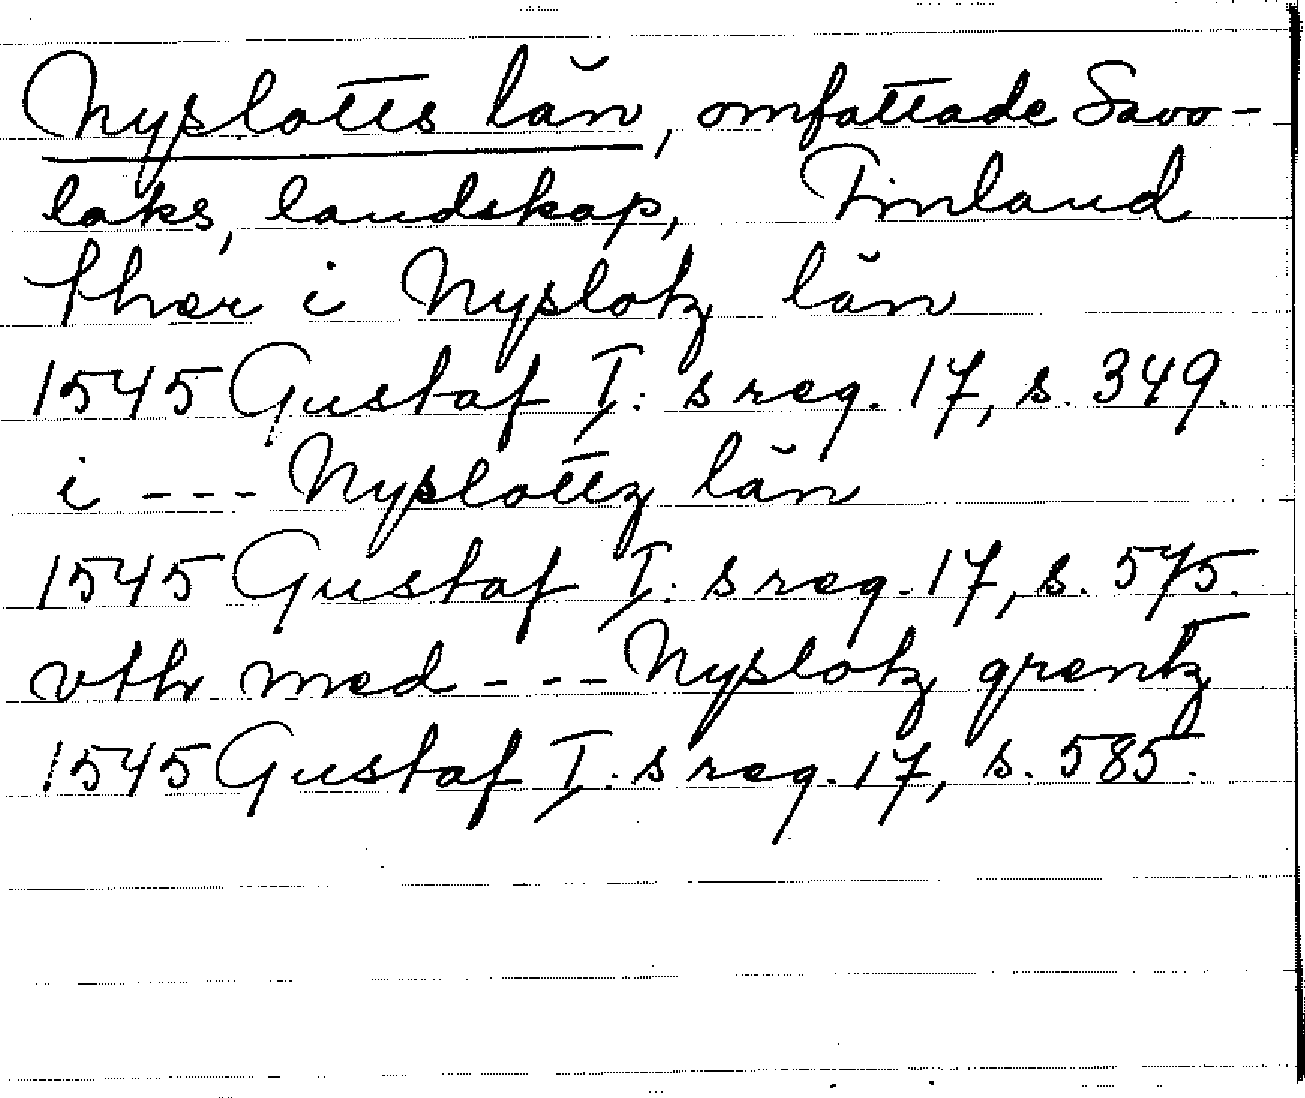 Nyslotts län, omfattade Savo-
laks, landskap, Finland
ther i Nyslotz län
1545 Gustaf I: s reg. 17, s. 349.
i --- Nyslottz län
1545 Gustaf I: s reg. 17, s. 575.
vth med --- Nyslotz grentz
1545 Gustaf I: s reg. 17, s. 585.